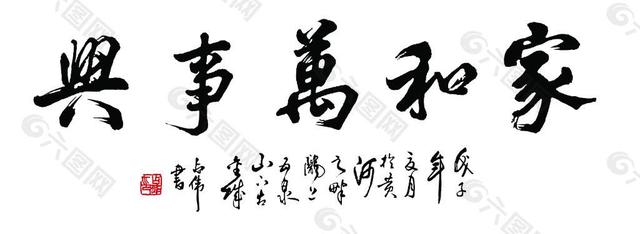 家和萬事興
戊子
年
夏月
於黄
河
之畔
隴上
五泉
山下古
金城
占伟
書
六图网